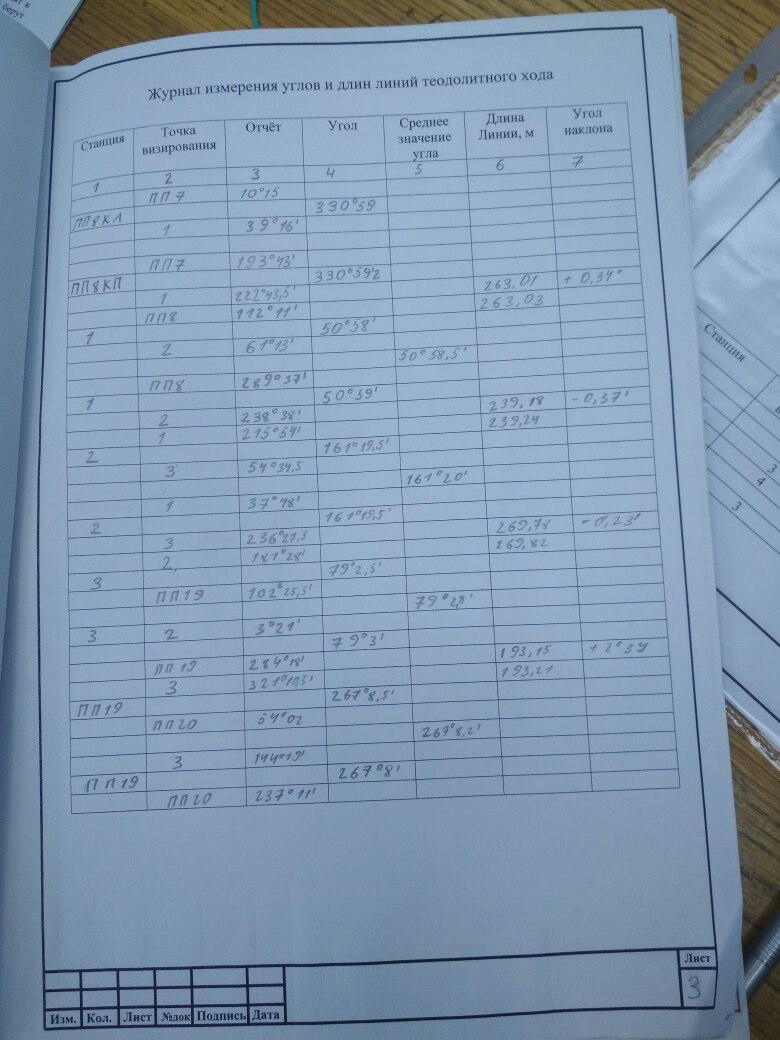 ат к
берут
Журнал измерения углов и длин линий теодолитного хода
Станция Точка визирования Отчёт Угол Среднее значение угла Длина Линии, м Угол наклона
1 2 3 4 5 6 7
ПП7 10°15
ПП8КЛ 330°59
1 39°16'
ПП7 193°43'
ПП8КП 330°59'2
1 222°43,5' 263,01 + 0,34°
ПП8 112°11' 263,03
1 50°58'
2 61°13'
50°58,5'
ПП8 289°37'
1 50°59'
2 238°38' 239,18 - 0,37'
1 215°54' 239,24
2 161°19,5'
3 54°34,5
161°20'
1 37°48'
2 161°19,5'
3 236°27,5 269,78 - 0,23'
2 181°28' 269,82
3 79°2,5'
ПП19 102°25,5'
79°2,8'
3 2 3°21'
79°3'
ПП19 284°18' 193,15
3 321°19,5' 193,21
ПП19 267°8,5'
ПП20 54°02
267°8,2'
3 144°19'
ПП19 267°8'
ПП20 237°11'
Изм. Кол. Лист №док Подпись Дата
Лист
3
Станция
3
4
3